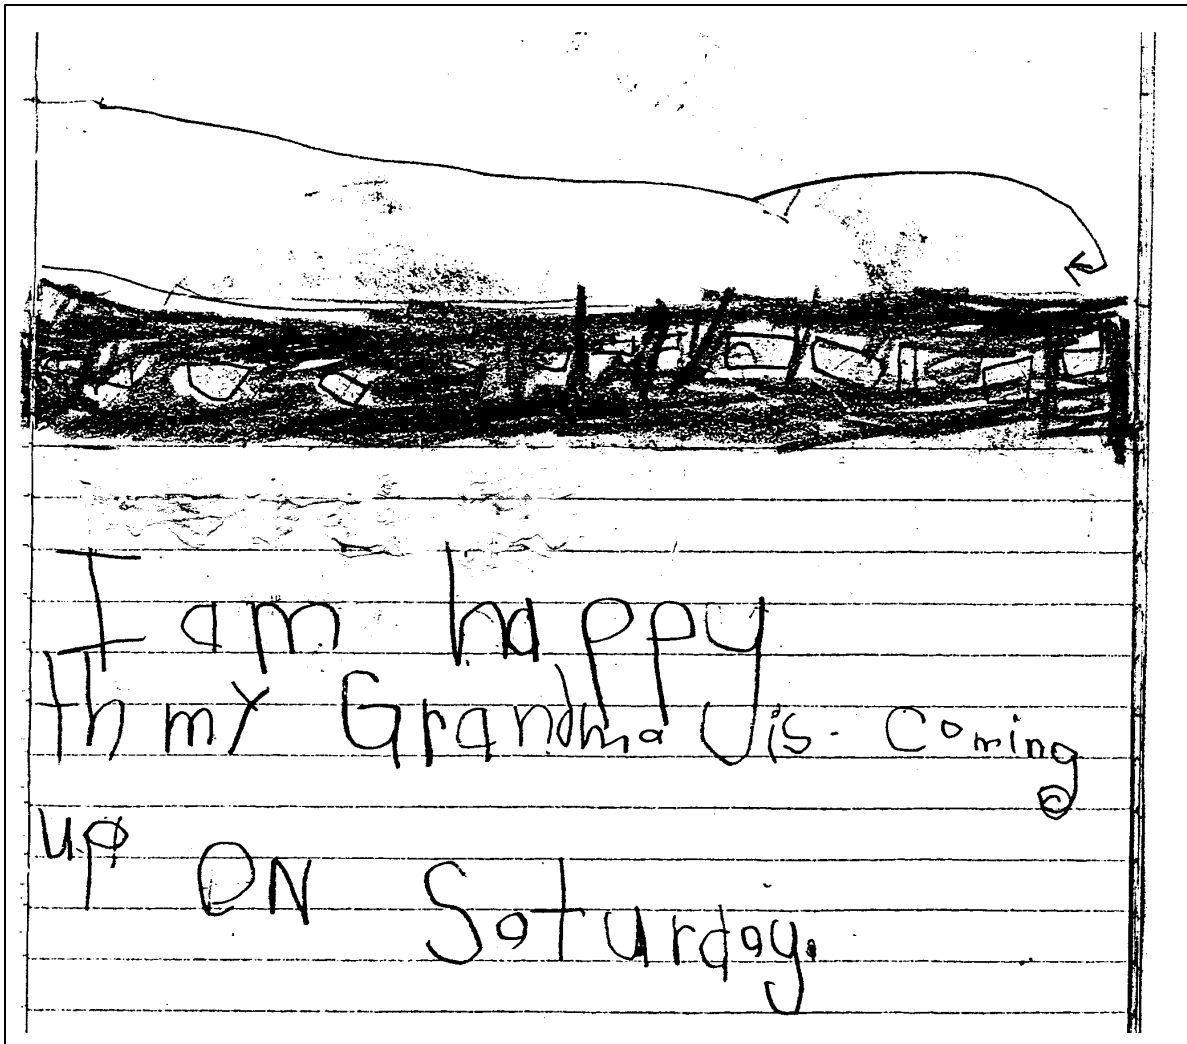 I am happy
th my Grandma is. Coming
up ON Saturday.